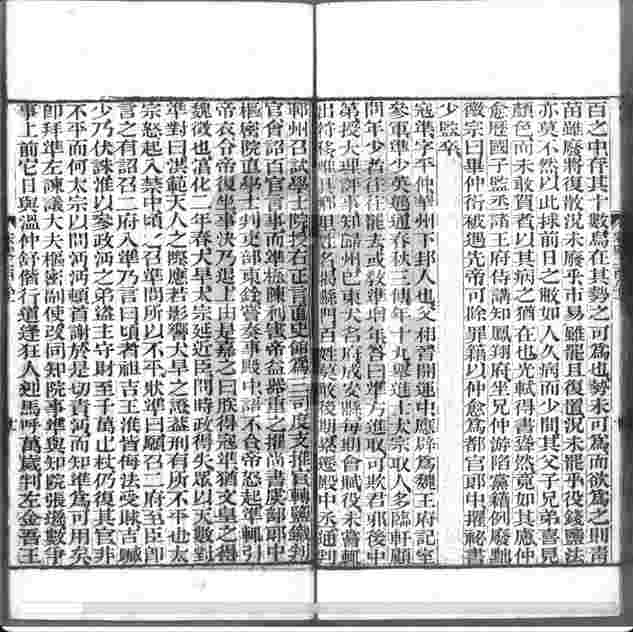 百之中存其十數焉在其勢之可為也勢未可為而欲為之則青
苗雖廢將復散況未廢乎市易雖罷且復置況未罷乎役錢鹽法
亦莫不然以此捄前日之敝如人久病而少間其父子兄弟喜見
顏色而未敢賀者以其病之猶在也光献得書聳然竟如其慮仲
愈歷國子監丞諸王府侍講知鳳翔府坐兄仲游陷黨籍例廢黜
徽宗曰畢仲衍被遇先帝可除罪籍以仲愈為都官郎中擢祕書
少監卒
寇準字平仲華州下邽人也父相晉開運中應辟為魏王府記室
參軍準少英邁通春秋三傳年十九舉進士太宗取人多臨軒顧
問年少者往往罷去或敎準增年答曰準方進取可欺君邪後中
第授大理評事知歸州巴東大名府成安縣每朝會賦役未嘗輒
出符移唯具鄉里姓名揭縣門百姓莫敢後期累遷殿中丞通判
鄆州召試學士院授右正言直史館為三司度支推官轉鹽鐵判
官會詔百官言事而準極陳利害帝益器重之擢尚書虞部郎中
樞密院直學士判吏部東銓嘗奏事殿中語不合帝怒起準輒引
帝衣令帝復坐事決乃退上由是嘉之曰朕得寇準猶文皇之得
魏徵也淳化二年春大旱太宗延近臣問時政得失眾以天數對
準對曰洪範天人之際應若影響大旱之證蓋刑有所不平也太
宗怒起入禁中頃之召準問所以不平狀準曰願召二府至臣即
言之有詔召二府入準乃言曰頃者祖吉王淮皆侮法受賕吉贓
少乃伏誅淮以參政沔之弟盜主守財至千萬止杖仍復其官非
不平而何太宗以問沔沔頓首謝於是切責沔而知準為可用矣
卽拜準左諫議大夫樞密副使改同知院事準與知院張遜數爭
事上前它日與溫仲舒偕行道逢狂人迎馬呼萬歲判左金吾王